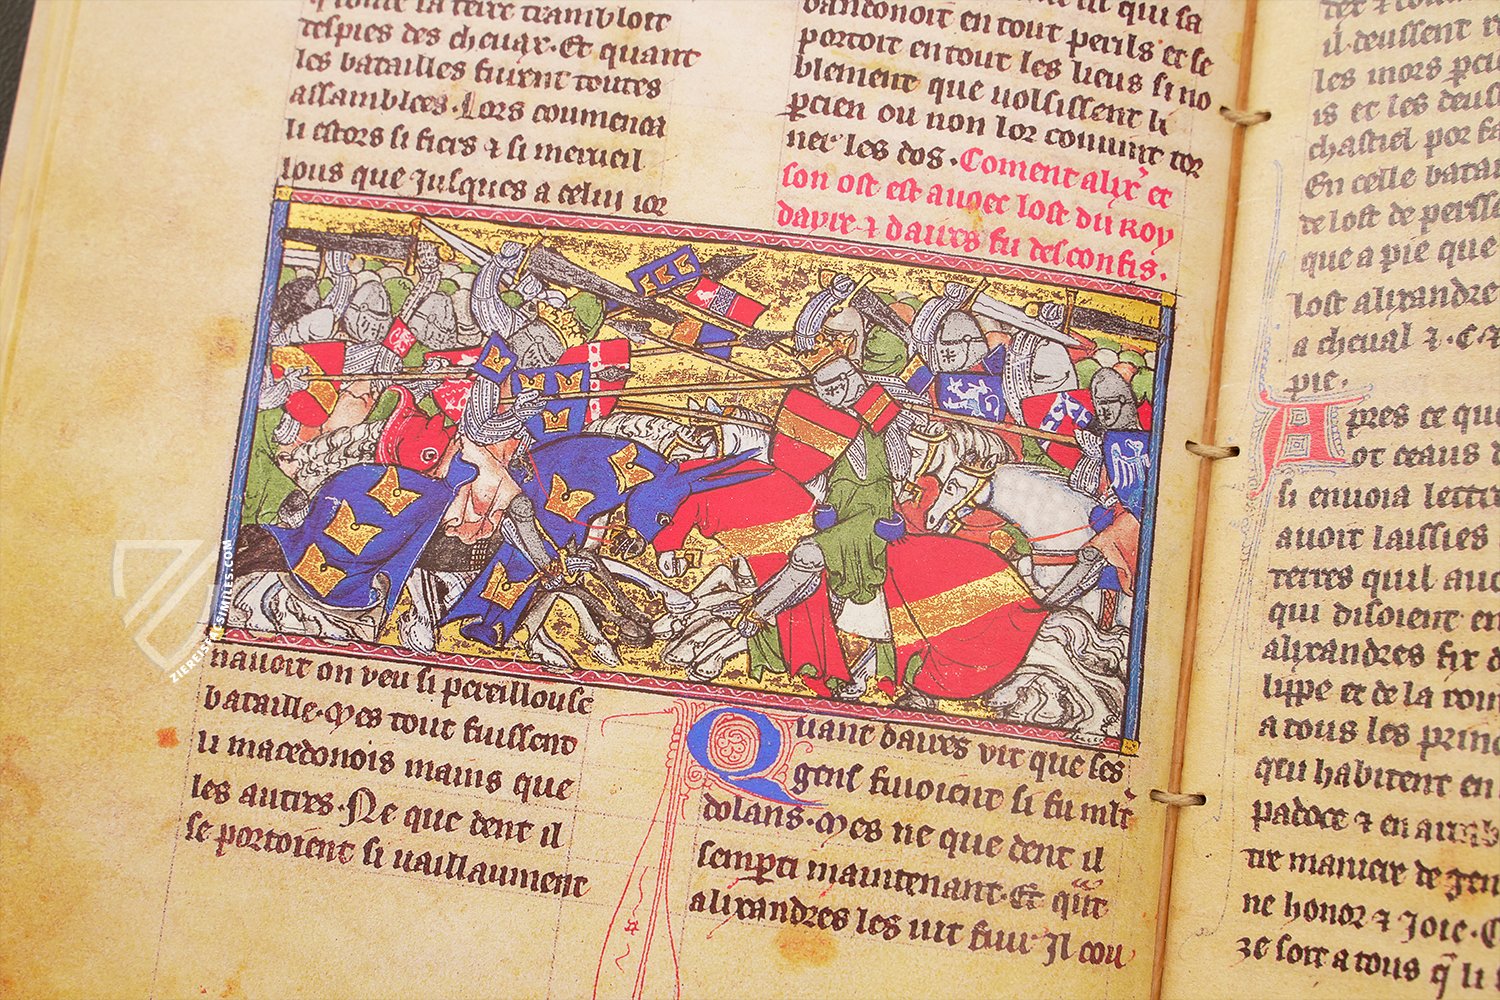 la terre trambloit
des piés des cheuax. Et quant
les batailles furent toutes
assamblees. Lors coumenca
li estors si fiers ⁊ si merueil
lous que Jusques a celui ior
nauoit on veu si perellouse
bataille. Mes tout fuissent
li macedonois mains que
les autres. Ne que dent il
se portoient si uaillaument
bandonoit en tout perils et se
portoit en tout les lieus si no
blement que uolsissent li
percien ou non lor conuint tor
ner les dos. Coment alix' et
son ost est auoec lost du Roy
dayre ⁊ daires fu desconfis.
Quant daires vit que ses
gens fuioient si fu mlt
dolans. Mes ne que dent il
semparti maintenant. Et qūt
alixandres les uit fuir Jl cou
il deussent
les mors
is et les
chastiel por
En celle
de lost de
que a pie que
lost alixandre
a cheual ⁊ .C.
pie.
Apres ce que
ot ceaus
si enuoia lettre
auoit laissies
terres quil
qui disoient en
alixandres fix
lippe et de la
a tous les
qui habitent en
⁊ en
tre maniere de gen
ne honor ⁊ Joie.
ze soit a tous q̄ li
ZIEREISFACSIMILES.COM